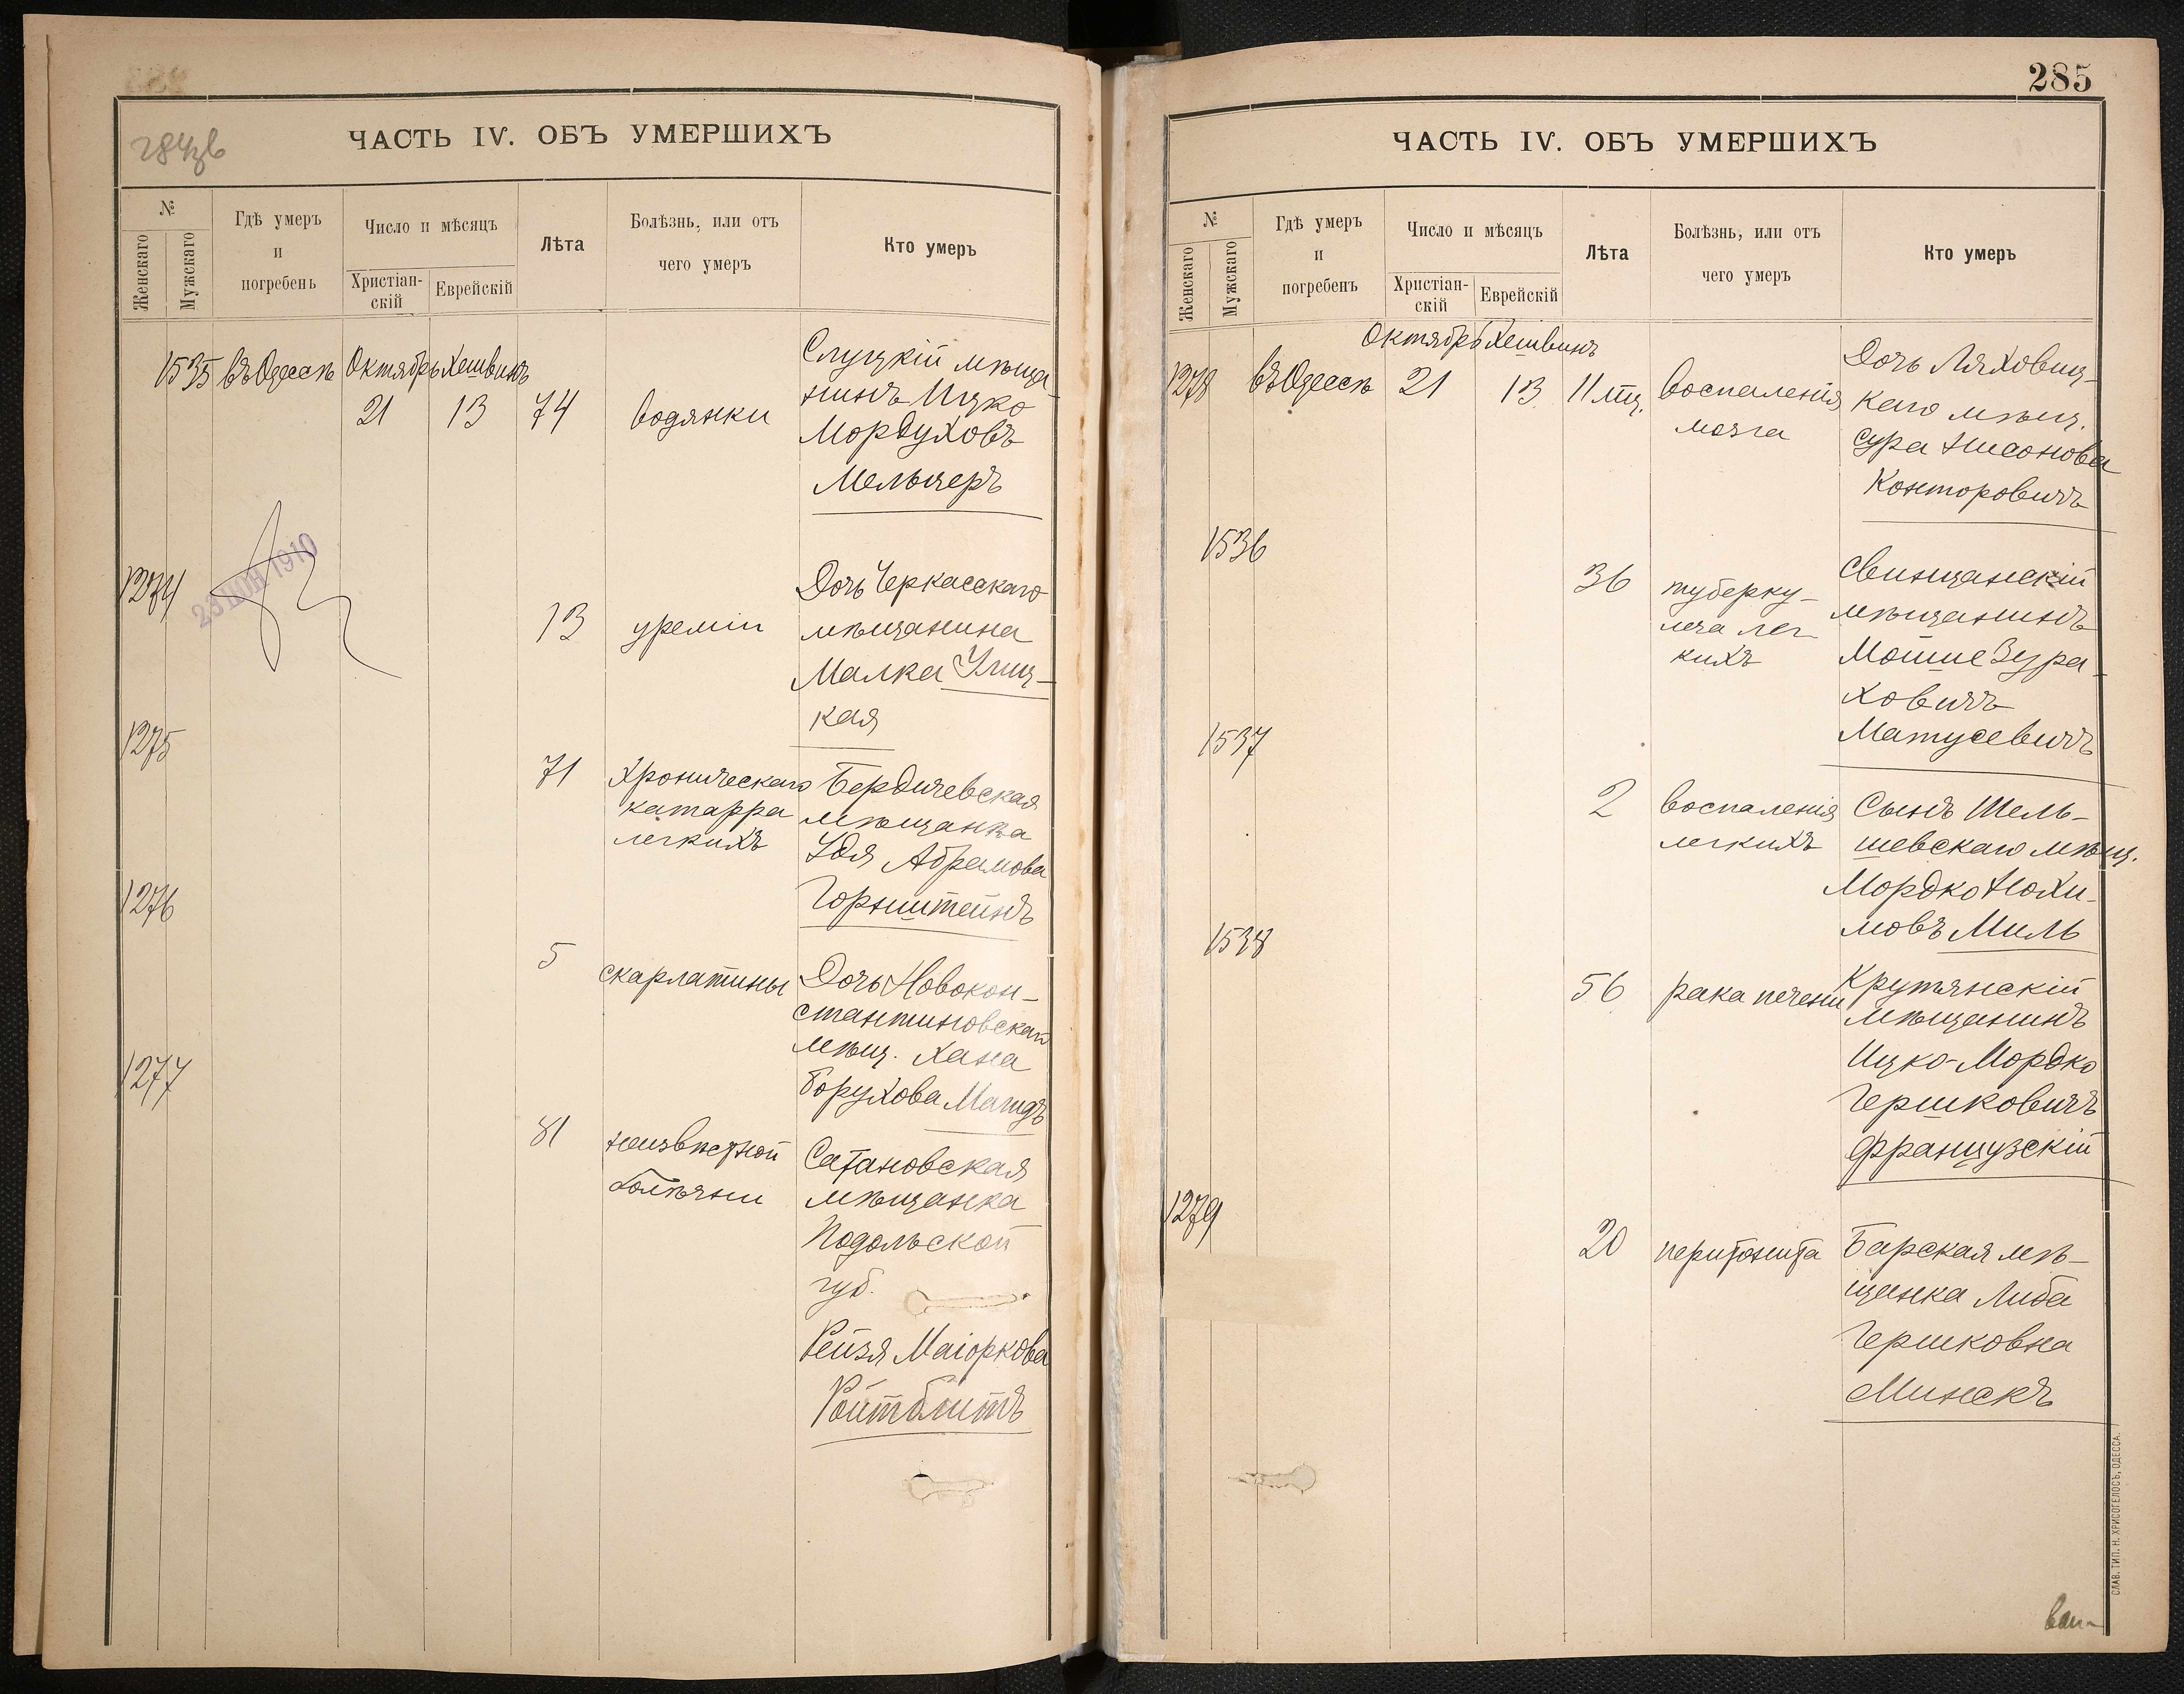 284зв
ЧАСТЬ IV. ОБЪ УМЕРШИХЪ
№
Женскаго
Мужскаго
Гдѣ умеръ
и
погребенъ
Число и мѣсяцъ
Христіан-
скій
Еврейскій
Лѣта
Болѣзнь, или отъ
чего умеръ
Кто умеръ
1535 въ Одессѣ Октябрь Хешвинъ
21 13 74 водянки
Слуцкій мѣща
нинъ Ицко
Мордуховъ
Мельцеръ
1274
23 ІЮН 1910
13 уреміи
Дочь Черкасскаго
мѣщанина
Малка Улиц-
кая
1275
71 хроническаго
катарра
легкихъ
Бердичевская
мѣщанка
Удя Абрамова
Горнштейнъ
1276
5 скарлатины
Дочь Новокон-
стантиновскаго
мѣщ. Хана
Борухова Магидъ
1277
81 неизвѣстной
болѣзни
Сатановская
мѣщанка
Подольской
губ.
Рейзя Маіоркова
Ройтблитъ
285
ЧАСТЬ IV. ОБЪ УМЕРШИХЪ
№
Женскаго
Мужскаго
Гдѣ умеръ
и
погребенъ
Число и мѣсяцъ
Христіан-
скій
Еврейскій
Лѣта
Болѣзнь, или отъ
чего умеръ
Кто умеръ
Октябрь Хешвинъ
1278 въ Одессѣ 21 13 11 мц. воспаленія
мозга
Дочь Ляховиц-
каго мѣщ.
Сура Нисонова
Конторовичъ
1536
36 туберку-
леза лег
кихъ
Свинцянскій
мѣщанинъ
Мошие Зура-
ховичъ
Матусевичъ
1537
2 воспаленія
легкихъ
Сынъ Шель-
шевскаго мѣщ.
Мордко Нохи-
мовъ Миль
1538
56 рака печени
Крутянскій
мѣщанинъ
Ицко-Мордко
Гершковичъ
Французскій
1279
20 перитонита
Барская мѣ-
щанка Либа
Гершковна
Минскъ
СЛАВ. ТИП. Н. ХРИСОГЕЛОСЪ, ОДЕССА.